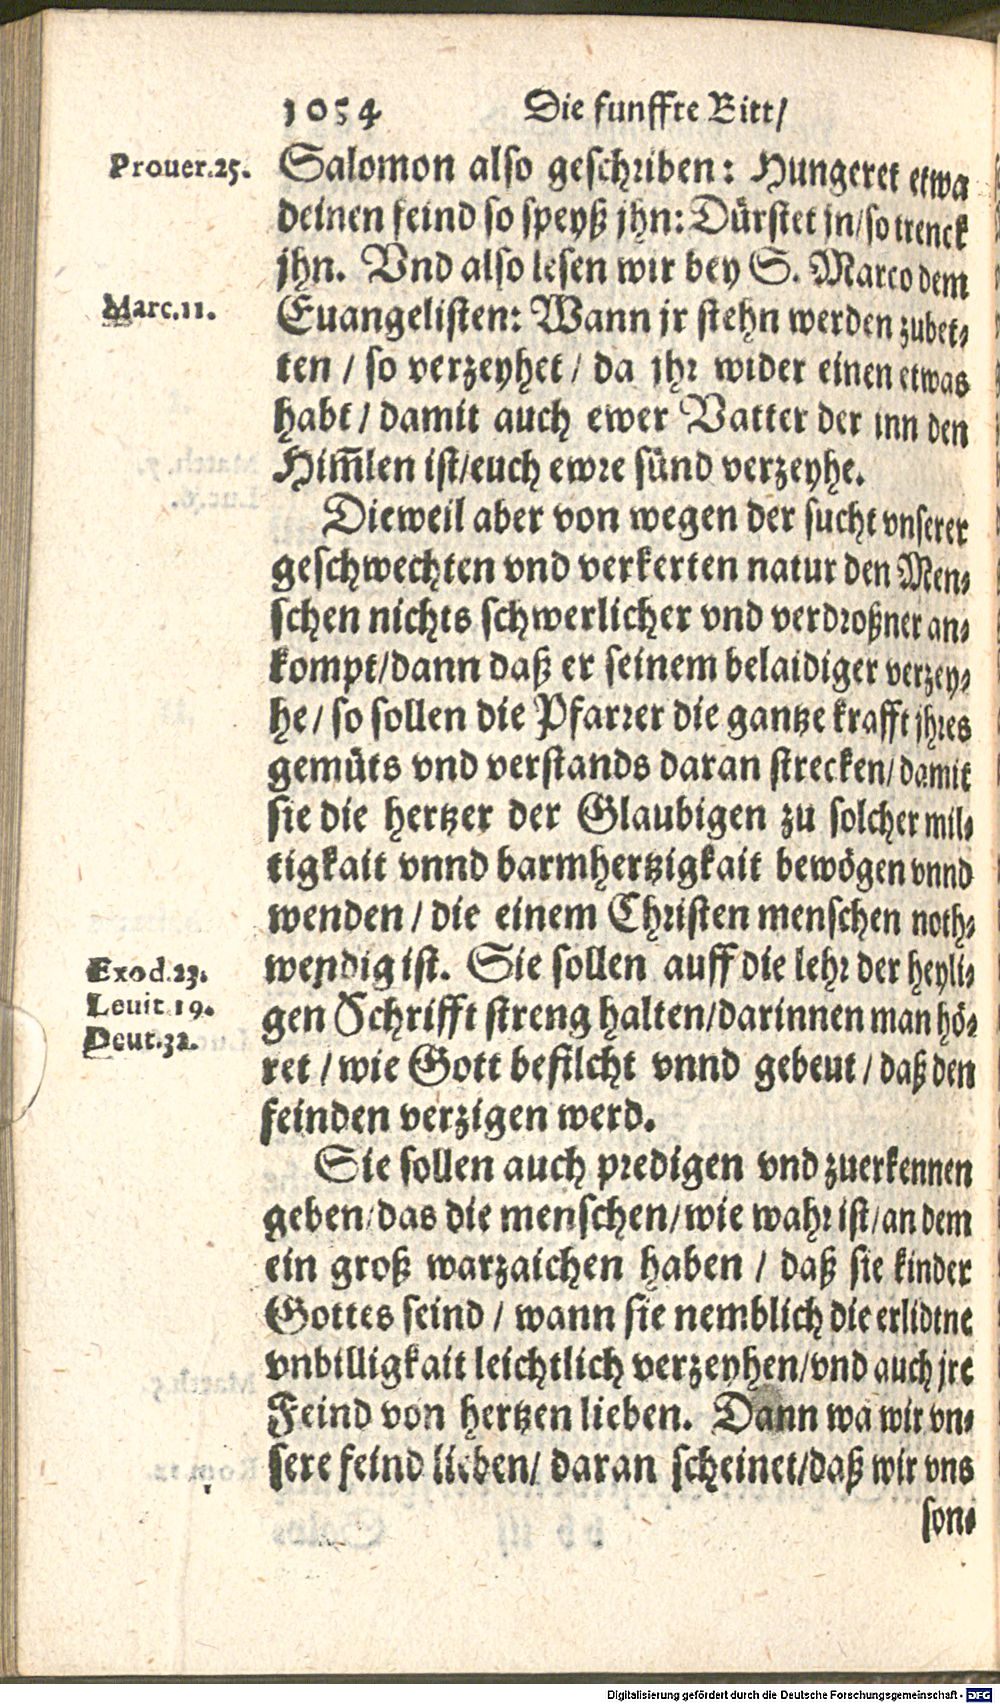 1054 Die funffte Bitt/
Prouer.25. Salomon also geschriben: Hungeret etwa
deinen feind so speyß jhn: Dürstet jn/so trenck
jhn. Vnd also lesen wir bey S. Marco dem
Marc.11. Euangelisten: Wann jr stehn werden zubet-
ten / so verzeyhet / da jhr wider einen etwas
habt / damit auch ewer Vatter der inn den
Him̃len ist/euch ewre sünd verzeyhe.
Dieweil aber von wegen der sucht vnserer
geschwechten vnd verkerten natur den Men-
schen nichts schwerlicher vnd verdroßner an-
kompt/dann daß er seinem belaidiger verzey-
he / so sollen die Pfarrer die gantze krafft jhres
gemüts vnd verstands daran strecken/damit
sie die hertzer der Glaubigen zu solcher mil-
tigkait vnnd barmhertzigkait bewögen vnnd
wenden / die einem Christen menschen noth-
Exod.23. wendig ist. Sie sollen auff die lehr der heyli-
Leuit.19. gen Schrifft streng halten/darinnen man hö-
Deut.32. ret / wie Gott befilcht vnnd gebeut / daß den
feinden verzigen werd.
Sie sollen auch predigen vnd zuerkennen
geben/das die menschen/wie wahr ist/an dem
ein groß warzaichen haben / daß sie kinder
Gottes seind / wann sie nemblich die erlidtne
vnbilligkait leichtlich verzeyhen/vnd auch jre
Feind von hertzen lieben. Dann wa wir vn-
sere feind lieben/ daran scheinet/daß wir vns
son-
Digitalisierung gefördert durch die Deutsche Forschungsgemeinschaft - DFG